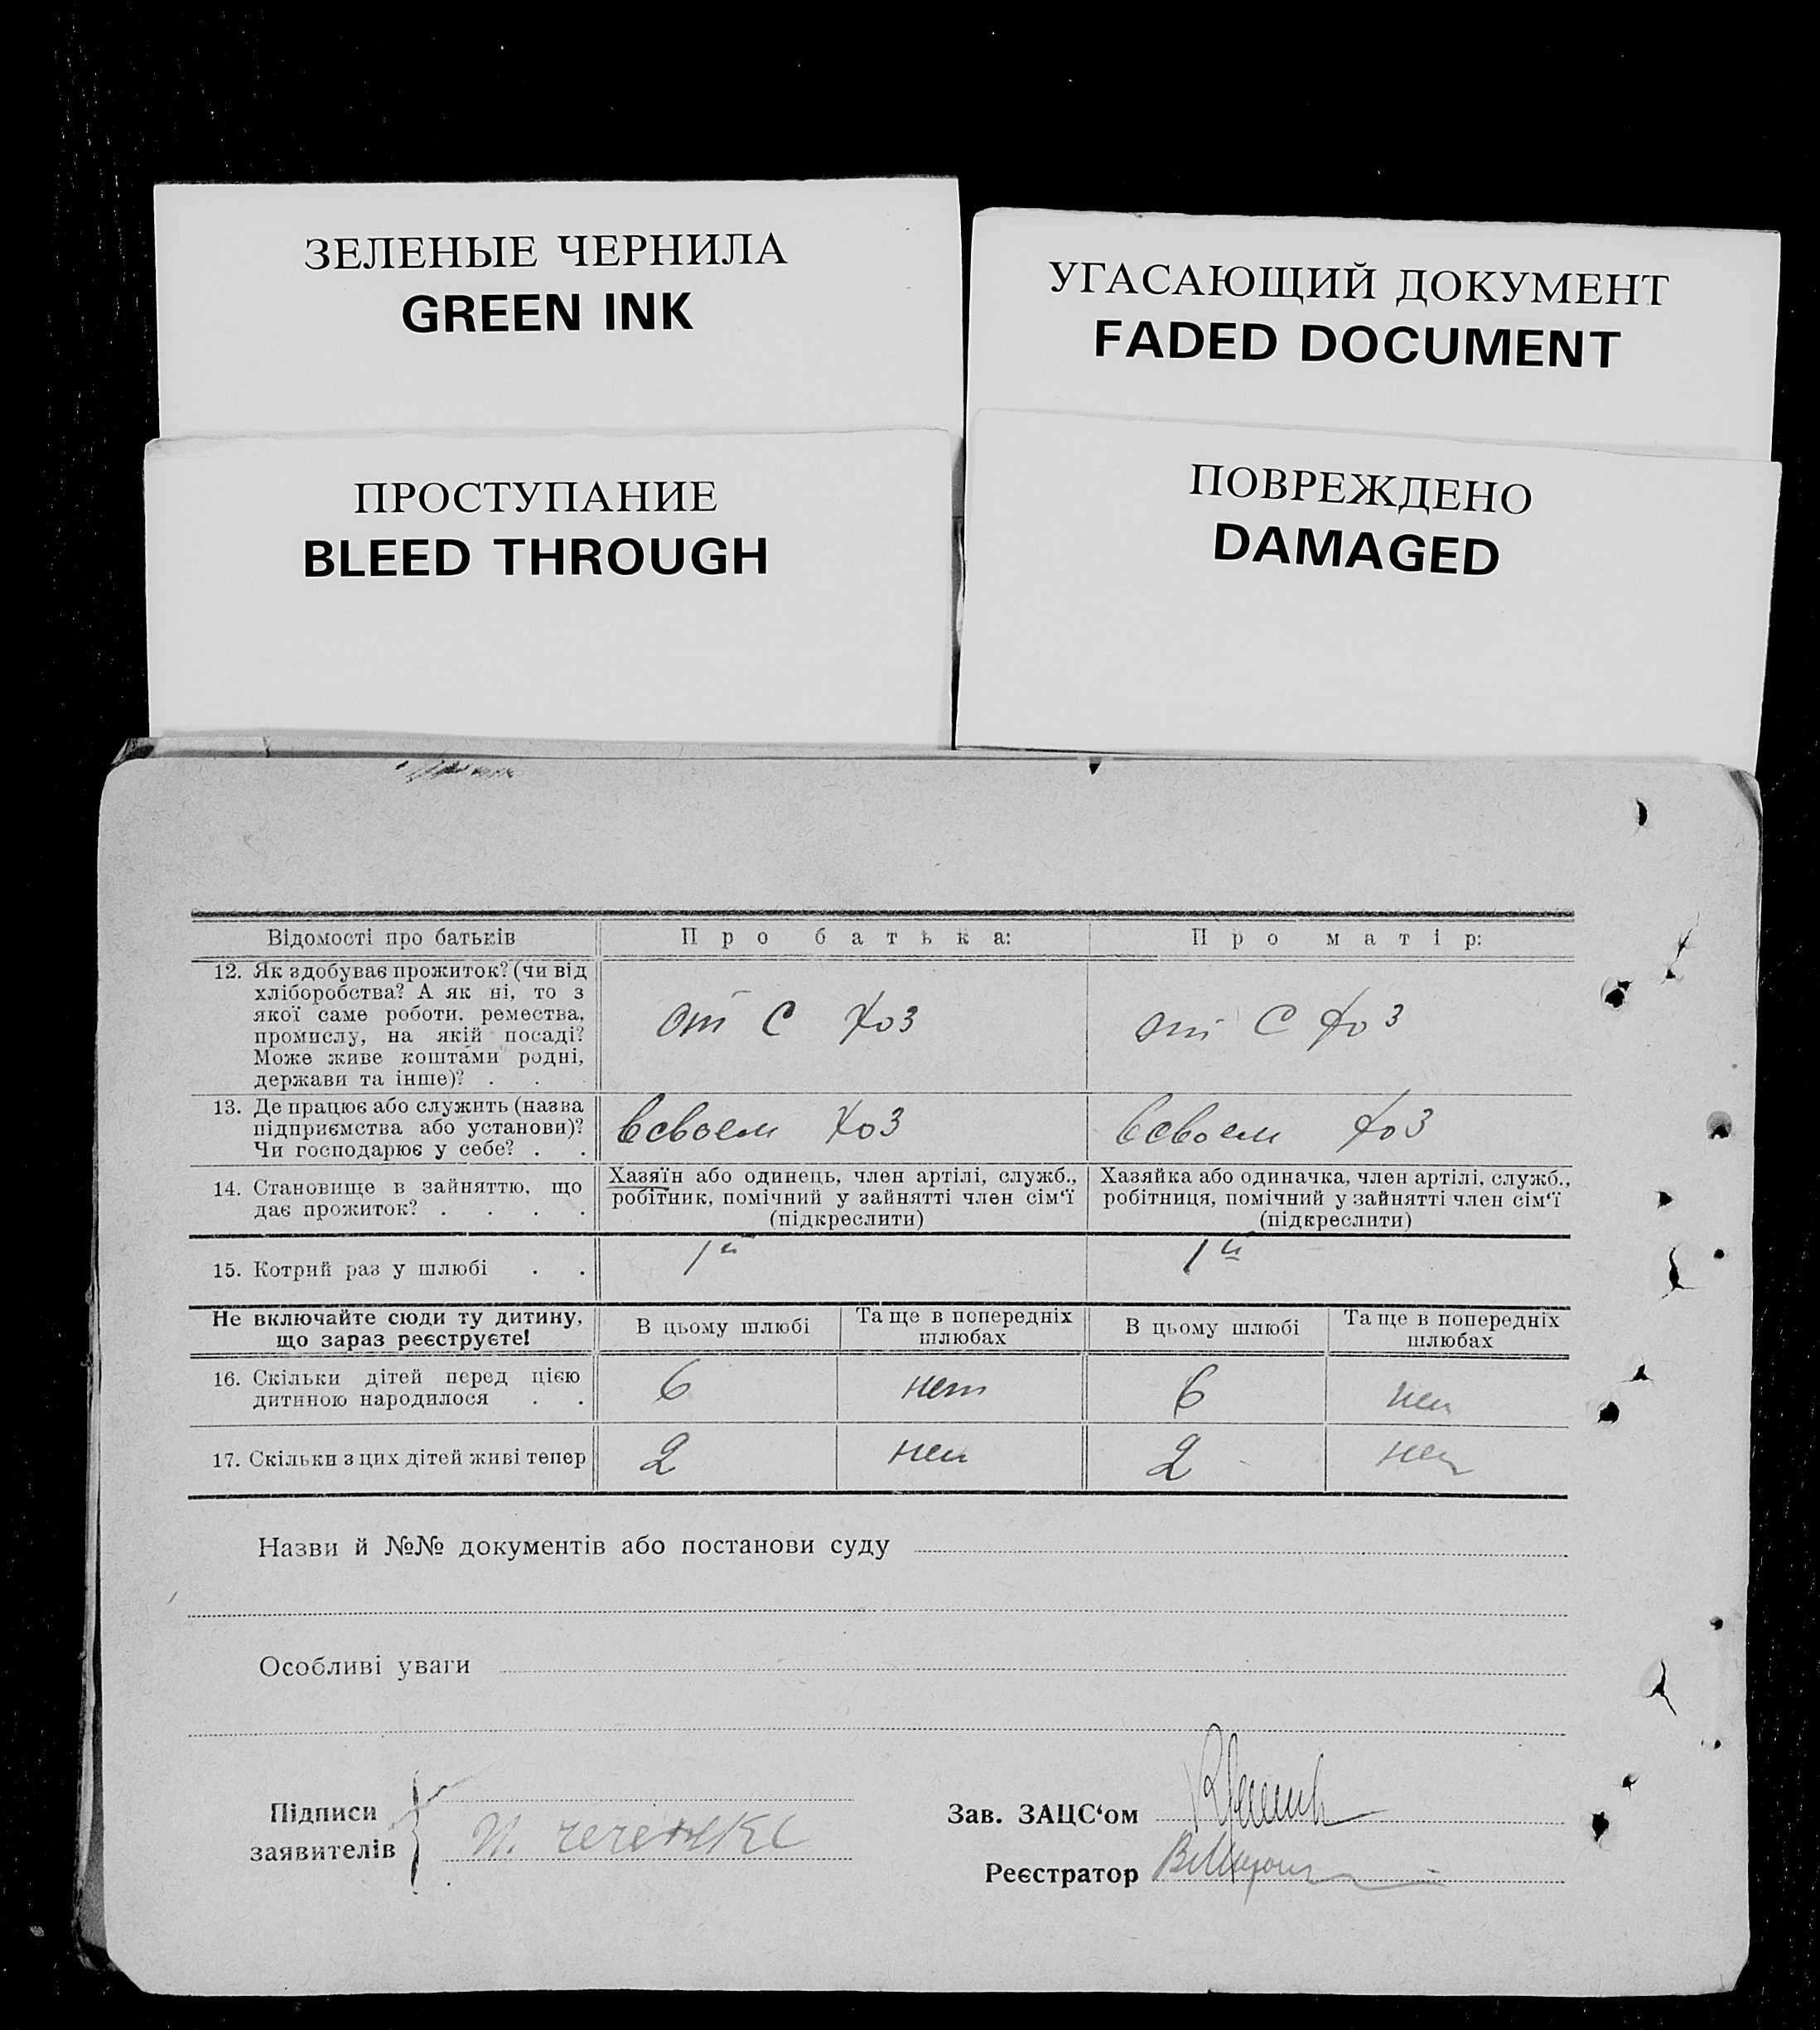 ЗЕЛЕНЫЕ ЧЕРНИЛА
GREEN INK
УГАСАЮЩИЙ ДОКУМЕНТ
FADED DOCUMENT
ПРОСТУПАНИЕ
BLEED THROUGH
ПОВРЕЖДЕНО
DAMAGED
Відомості про батьків
Про батька:
Про матір:
12. Як здобуває прожиток? (чи від
хліборобства? А як ні, то з
якої саме роботи, ремества,
промислу, на якій посаді?
Може живе коштами родні,
держави та інше)? . .
от С Хоз
от С Хоз
13. Де працює або служить (назва
підприємства або установи)?
Чи господарює у себе? . .
всвоем Хоз
всвоем Хоз
14. Становище в зайняттю, що
дає прожиток? . . . .
Хазяїн або одинець, член артілі, служб.,
робітник, помічний у зайнятті член сім‘ї
(підкреслити)
Хазяйка або одиначка, член артілі, служб.,
робітниця, помічний у зайнятті член сім‘ї
(підкреслити)
15. Котрий раз у шлюбі . .
1й
1й
Не включайте сюди ту дитину,
що зараз реєструєте!
В цьому шлюбі
Та ще в попередніх
шлюбах
В цьому шлюбі
Та ще в попередніх
шлюбах
16. Скільки дітей перед цією
дитиною народилося . .
6
нет
6
нет
17. Скільки з цих дітей живі тепер
2
нет
2
нет
Назви й №№ документів або постанови суду
Особливі уваги
Підписи
заявителів
Зав. ЗАЦС‘ом
Реєстратор